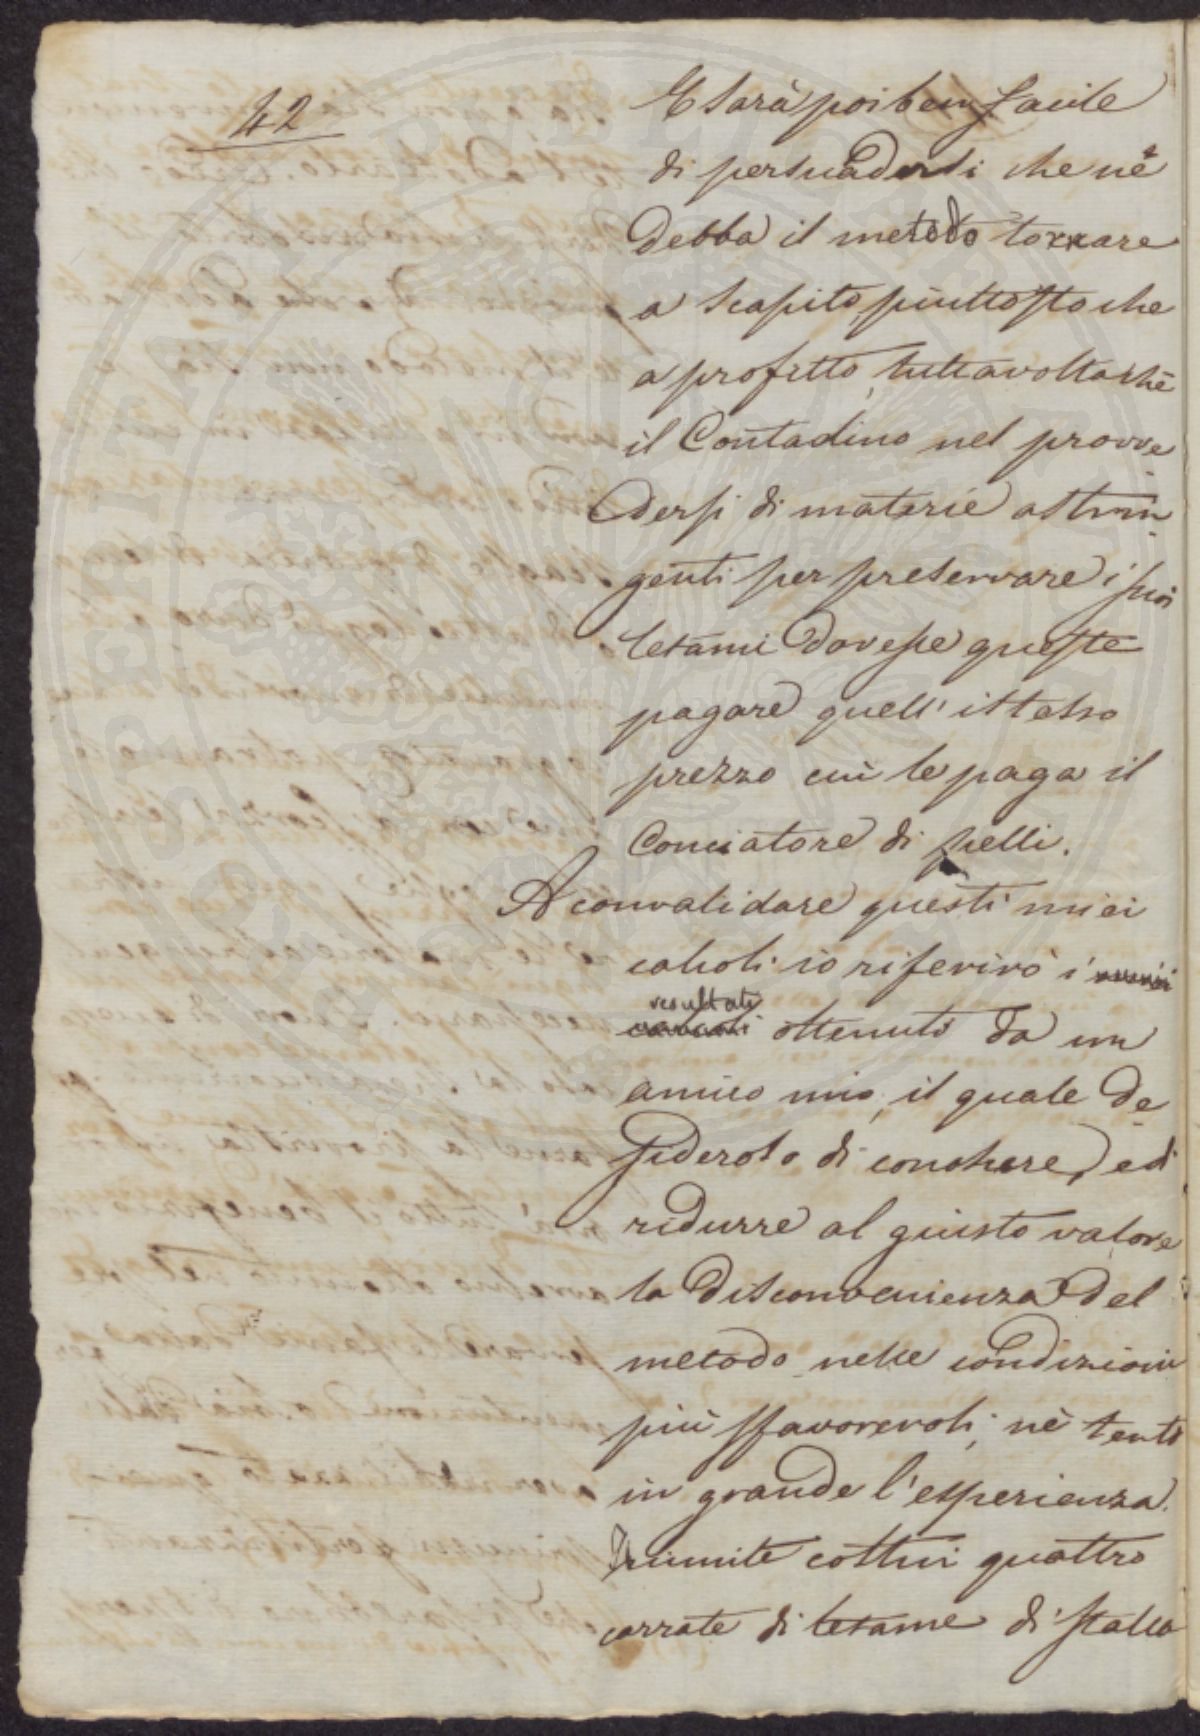 42
E sarà poi ben facile
di persuadersi che ne
debba il metodo tornare
a scapito, piuttosto che
a profitto, tuttavoltachè
il Contadino nel provve
dersi di materie astrin
genti per preservare i suoi
letami dovesse queste
pagare quell' istesso
prezzo cui le paga il
Conciatore di pelli.
A convalidare questi miei
calcoli io riferirò i
resultati
ottenuti da un
amico mio, il quale de
sideroso di conoscere, e di
ridurre al giusto valore
la disconvenienza del
metodo nelle condizioni
più sfavorevoli, nè tentò
in grande l'esperienza.
Riunite costui quattro
carrate di letame di stalla